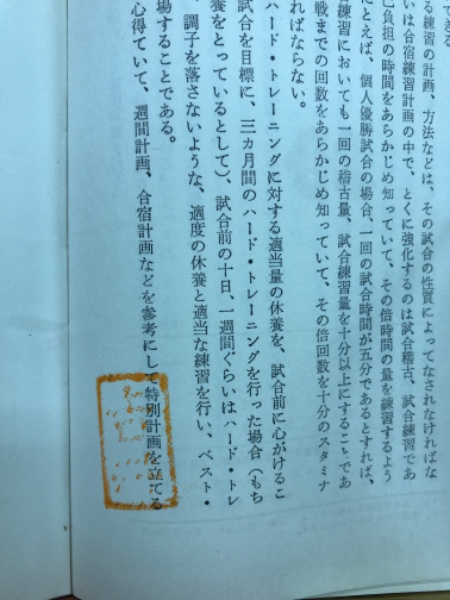 できる
る練習の計画、方法などは、その試合の性質によってなされなければな
いは合宿練習計画の中で、とくに強化するのは試合稽古、試合練習であ
己負担の時間をあらかじめ知っていて、その倍時間の量を練習するよう
にとえば、個人優勝試合の場合、一回の試合時間が五分であるとすれば、
練習においても一回の稽古量、試合練習量を十分以上にすることであ
戦までの回数をあらかじめ知っていて、その倍回数を十分のスタミナ
ればならない。
ハード・トレーニングに対する適当量の休養を、試合前に心がけるこ
試合を目標に、三カ月間のハード・トレーニングを行った場合(もち
養をとっているとして)、試合前の十日、一週間ぐらいはハード・トレ
調子を落さないような、適度の休養と適当な練習を行い、ベスト・
場することである。
心得ていて、週間計画、合宿計画などを参考にして特別計画を立てる